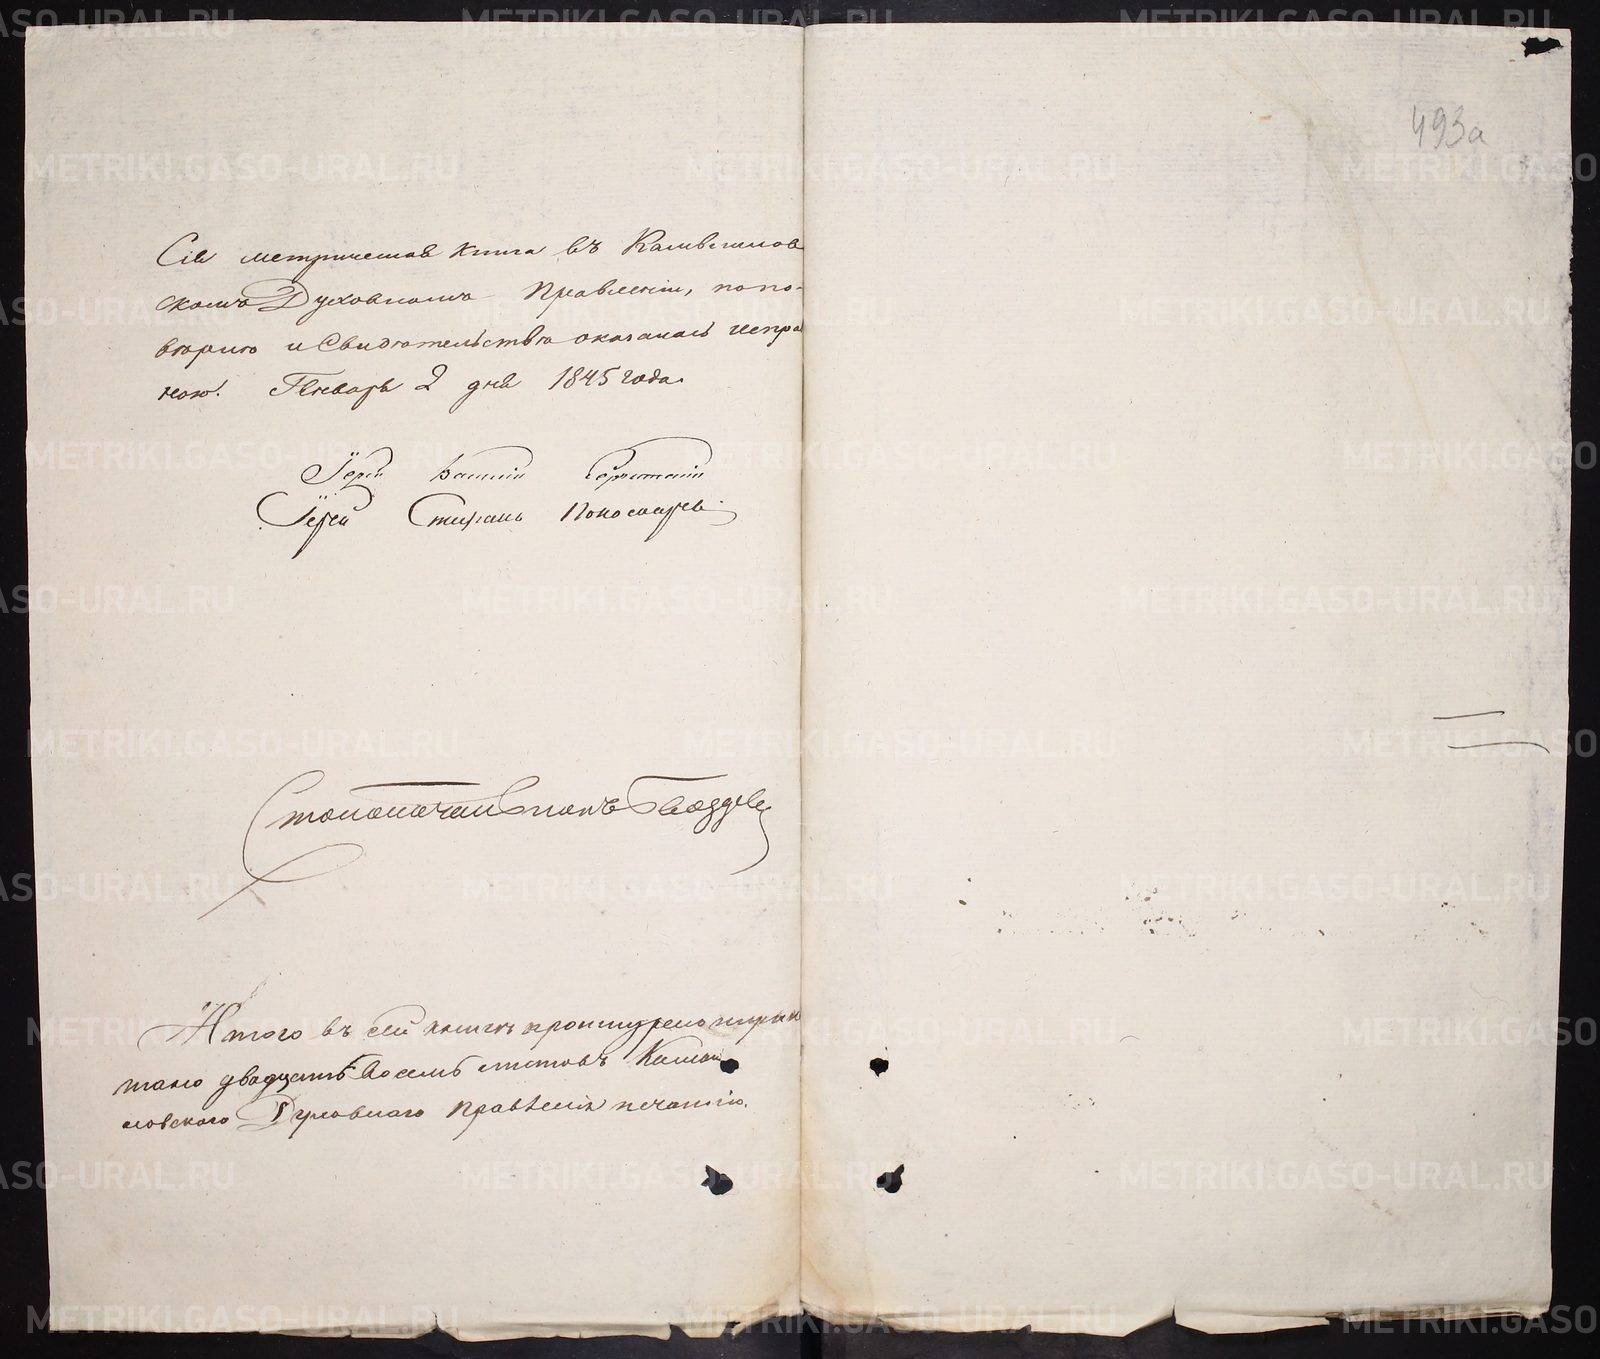 493а
Сія метрическая книга въ Камышлов
скомъ Духовномъ Правленіи, по по-
вѣркѣ и Свидѣтельствѣ оказалась испра
ною. Генваря 2 дня 1845 года.
Іерей
Іерей Стефанъ Пономаревъ
Столоначальникъ Гвоздевъ
Итого въ сей книгѣ прошнурено
двадцать восемь листовъ Камыш
ловского Духовнаго Правленія печатію.